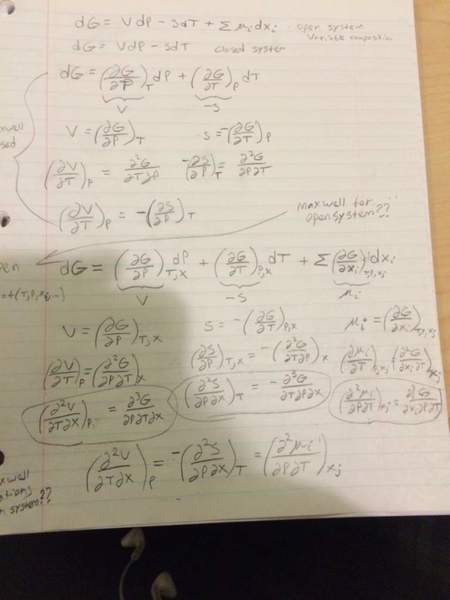 dG = VdP - SdT + Σμidxi open system
variable composition
dG = VdP - SdT closed system
dG = (∂G/∂P)T dP + (∂G/∂T)P dT
V -S
V = (∂G/∂P)T -S = -(∂G/∂T)P
(∂V/∂T)P = ∂²G/∂T∂P -∂S/∂P)T = ∂²G/∂P∂T
(∂V/∂T)P = -(∂S/∂P)T
maxwell for
open system??
dG = (∂G/∂P)T,x dP + (∂G/∂T)P,x dT + Σ(∂G/∂xi)T,P,xj dxi
V -S μi
V = (∂G/∂P)T,x S = -(∂G/∂T)P,x μi = (∂G/∂xi)T,P,xj
(∂V/∂T)P = (∂²G/∂P∂T)x (∂S/∂P)T,x = -(∂²G/∂P∂T)x (∂μi/∂T)P,xj (∂²G/∂xi∂T)xj
(∂²V/∂T∂x)P, = ∂³G/∂P∂T∂x (∂²S/∂P∂x)T = -∂³G/∂T∂P∂x (∂²μi/∂P∂T)xj = ∂³G/∂xi∂P∂T
(∂²V/∂T∂x)P = -(∂²S/∂P∂x)T = (∂²μi/∂P∂T)xj